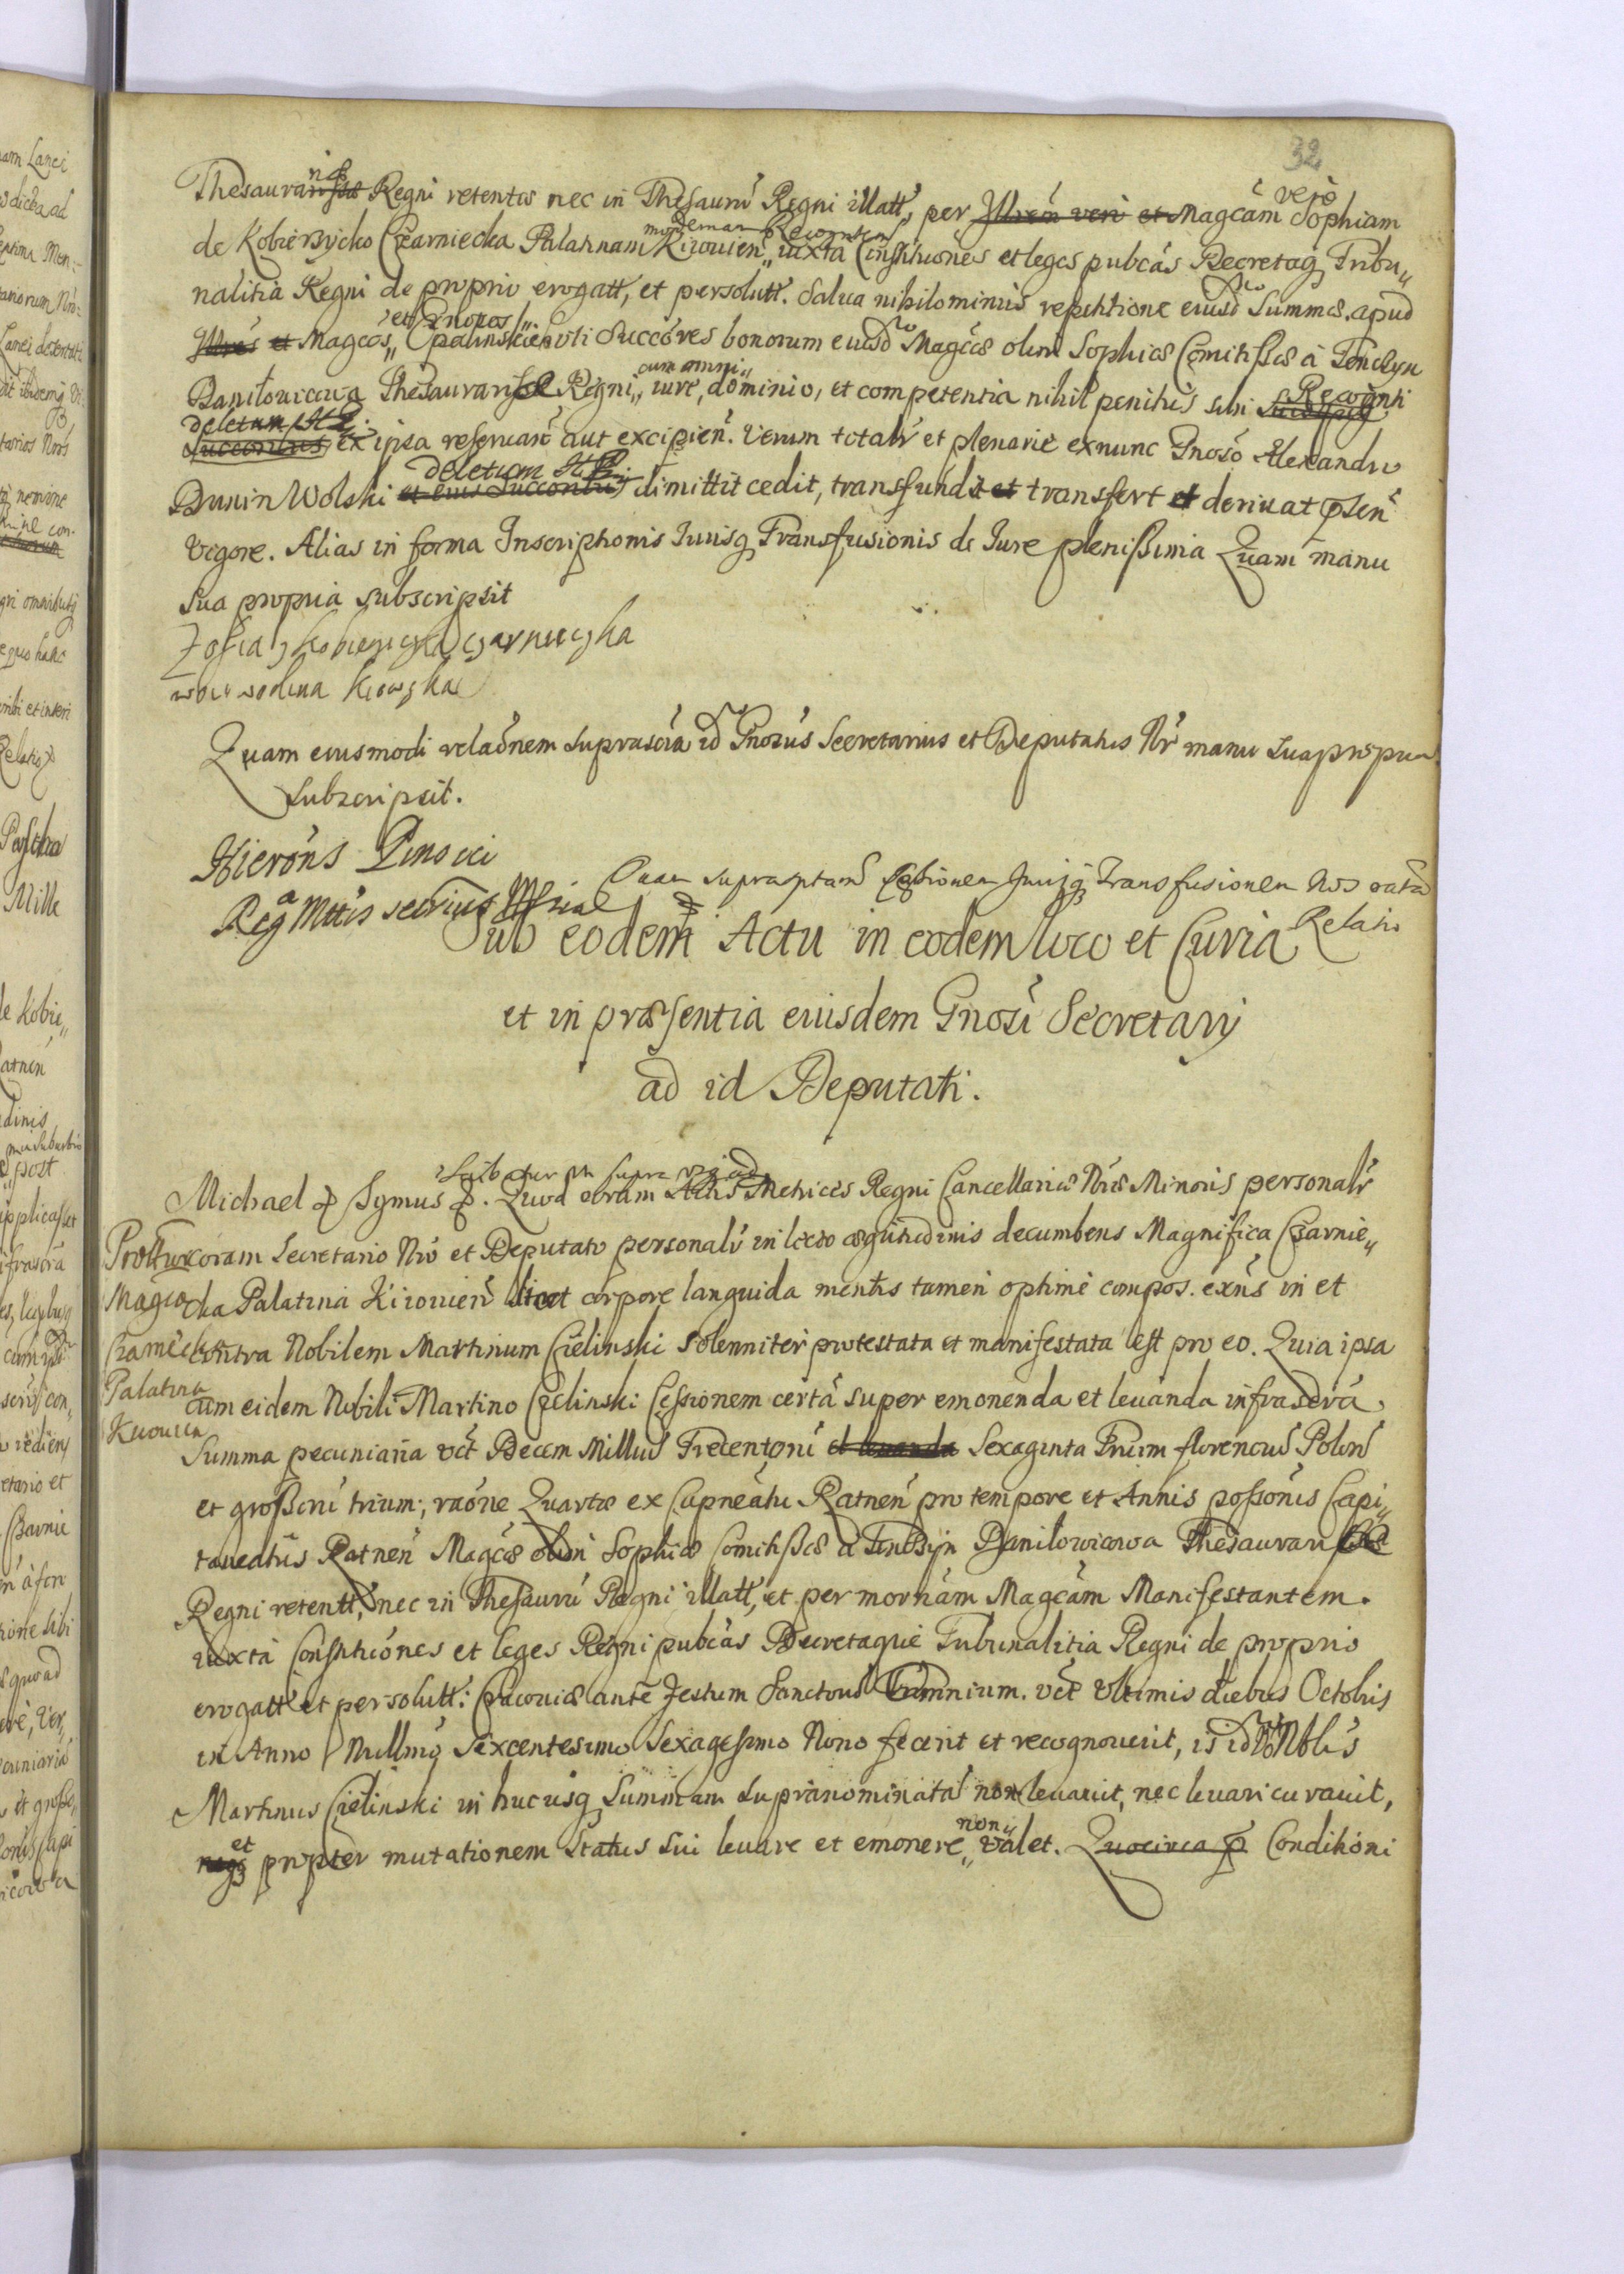 32
Thesaurarissæ Regni retentæ nec in Thesaurũ Regni illatt, per Illrem veri et Magcám verò Sophiam
de Kobierzycko Czarniecka Palatinam Kiiouien modernam Recognten iuxta Constitutiones et leges pubcás Decretaq Tribu
nalitia Regni de proprio erogatt, et persolutt. Salua nihilominus repetitione eiusd Summæ apud
Illres et Magcós et Gnosos Opalinskie uti Succóres bonorum eiusd Magcæ olim Sophiæ Comitissæ à Tenczyn
Daniłouiczowa Thesaurarissæ Regni, cum omni iure, dominio, et competentia nihil penitus sibi Recognti
deletum
Succoribus ex ipsa reseruań aut excipień. Verum totalr et plenarie exnunc Gnosó Alexandro
deletum
Dunin Wolski et eius Succoribus dimittit cedit, transfundit et transfert et deriuat pńsen
vigore. Alias in forma Inscriptionis Iurisq Transfusionis de Iure plenissima Quam manu
sua propria subscripsit
Zofia z Kobierzycka Czarnieczka
woiewodzina Kiowska
Quam eiusmodi relaónem suprascra id Gnosus Secretarius et Deputatus Nr manu sua propria
subscripsit.
Hierońs Pinocci
Reg Mttis secrius
Quam suprasptam Cessionem Jurisq Transfusionem Nos ratã
Relatio
Sub eodem Actu in eodem loco et Curia
et in præsentia eiusdem Gnosi Secretarij
ad id Deputati.
Scribatur ut supra
Michael Symus. Quod coram Actis Metrices Regni Cancellariæ Nræ Minoris personalr
coram Secretario Nro et Deputato personalr in lecto ægritudinis decumbens Magnifica Czarnie
cka Palatina Kiiouien licet corpore languida mentis tamen optime compos. exńs in et
contra Nobilem Martinum Cielinski solenniter protestata et manifestata est pro eo. Quia ipsa
Magca
Palatina
Kiiouien
cum eidem Nobili Martino Cielinski Cessionem certã super emonenda et leuanda infrascra
Summa pecuniaria vct Decem Millium Trecentorũ et leuanda Sexaginta Trium florenorũ Polon
et grossorũ trium, raóne Quartæ ex Capneátu Ratnen pro tempore et Annis possónis Capi
taneatus Ratnen Magcæ olim Sophiæ Comitissæ à Tenczyn Daniłowiczowa Thesaurarissæ
Regni retentt, nec in Thesaurũ Regni illatt, et per mornám Magcám Manifestantem.
iuxta Constitutiónes et leges Regni pubcás Decretaque Tribunalitia Regni de proprio
erogatt et persolutt: Cracouiæ ante Festum Sanctorũ Omnium. vct Ultimis diebus Octobris
in Anno Millmo Sexcentesimo Sexagesimo Nono fecerit et recognouerit, is id Nblis
Martinus Cielinski in hucusq Summam supranominatã non leuauit, nec leuari curauit,
neq et propter mutationem Status sui leuare et emonere non valet. Quocirca Conditióni